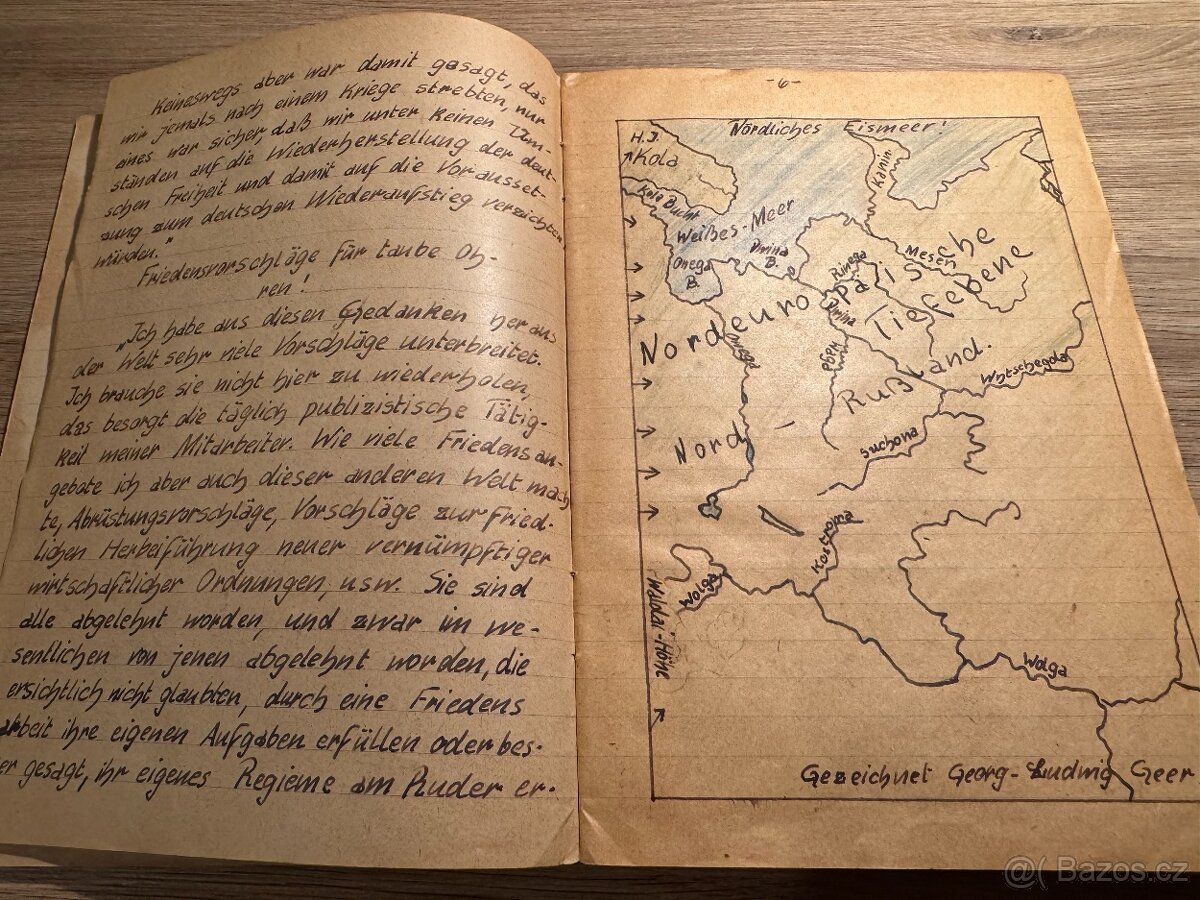 Keineswegs aber war damit gesagt, das
mir jemals nach einem Kriege strebten, nur
eines war sicher, daß mir unter keinen Um-
ständen auf die Wiederherstellung der deut-
schen Freiheit und damit auf die Vorausset-
zung zum deutschen Wiederaufstieg verzichten
würden."
Friedensvorschläge für taube Oh-
ren!
„Ich habe aus diesen Gedanken heraus
der Welt sehr viele Vorschläge unterbreitet.
Ich brauche sie nicht hier zu wiederholen,
das besorgt die täglich publizistische Tätig-
keit meiner Mitarbeiter. Wie viele Friedensan-
gebote ich aber auch dieser anderen Welt mach
te, Abrüstungsvorschläge, Vorschläge zur Fried-
lichen Herbeiführung neuer vernümpftiger
wirtschaftlicher Ordnungen, usw. Sie sind
alle abgelehnt worden, und zwar im we-
sentlichen von jenen abgelehnt worden, die
ersichtlich nicht glaubten, durch eine Friedens
arbeit ihre eigenen Aufgaben erfüllen oder bes-
er gesagt, ihr eigenes Regieme am Ruder er-
-6-
Nördliches Eismeer!
H.J.
Kola
Kanin
Kola Bucht
Weißes-Meer
Dwina
B.
Onega
B.
Mesen
Pinega
Dwina
Nordeuropäische
Tiefebene
Onega
Rußland.
Wytschegda
Nord
Suchona
Kostroma
Wolga
Waldai-Höhe
Wolga
Gezeichnet Georg-Ludwig Geer
@( Bazos.cz